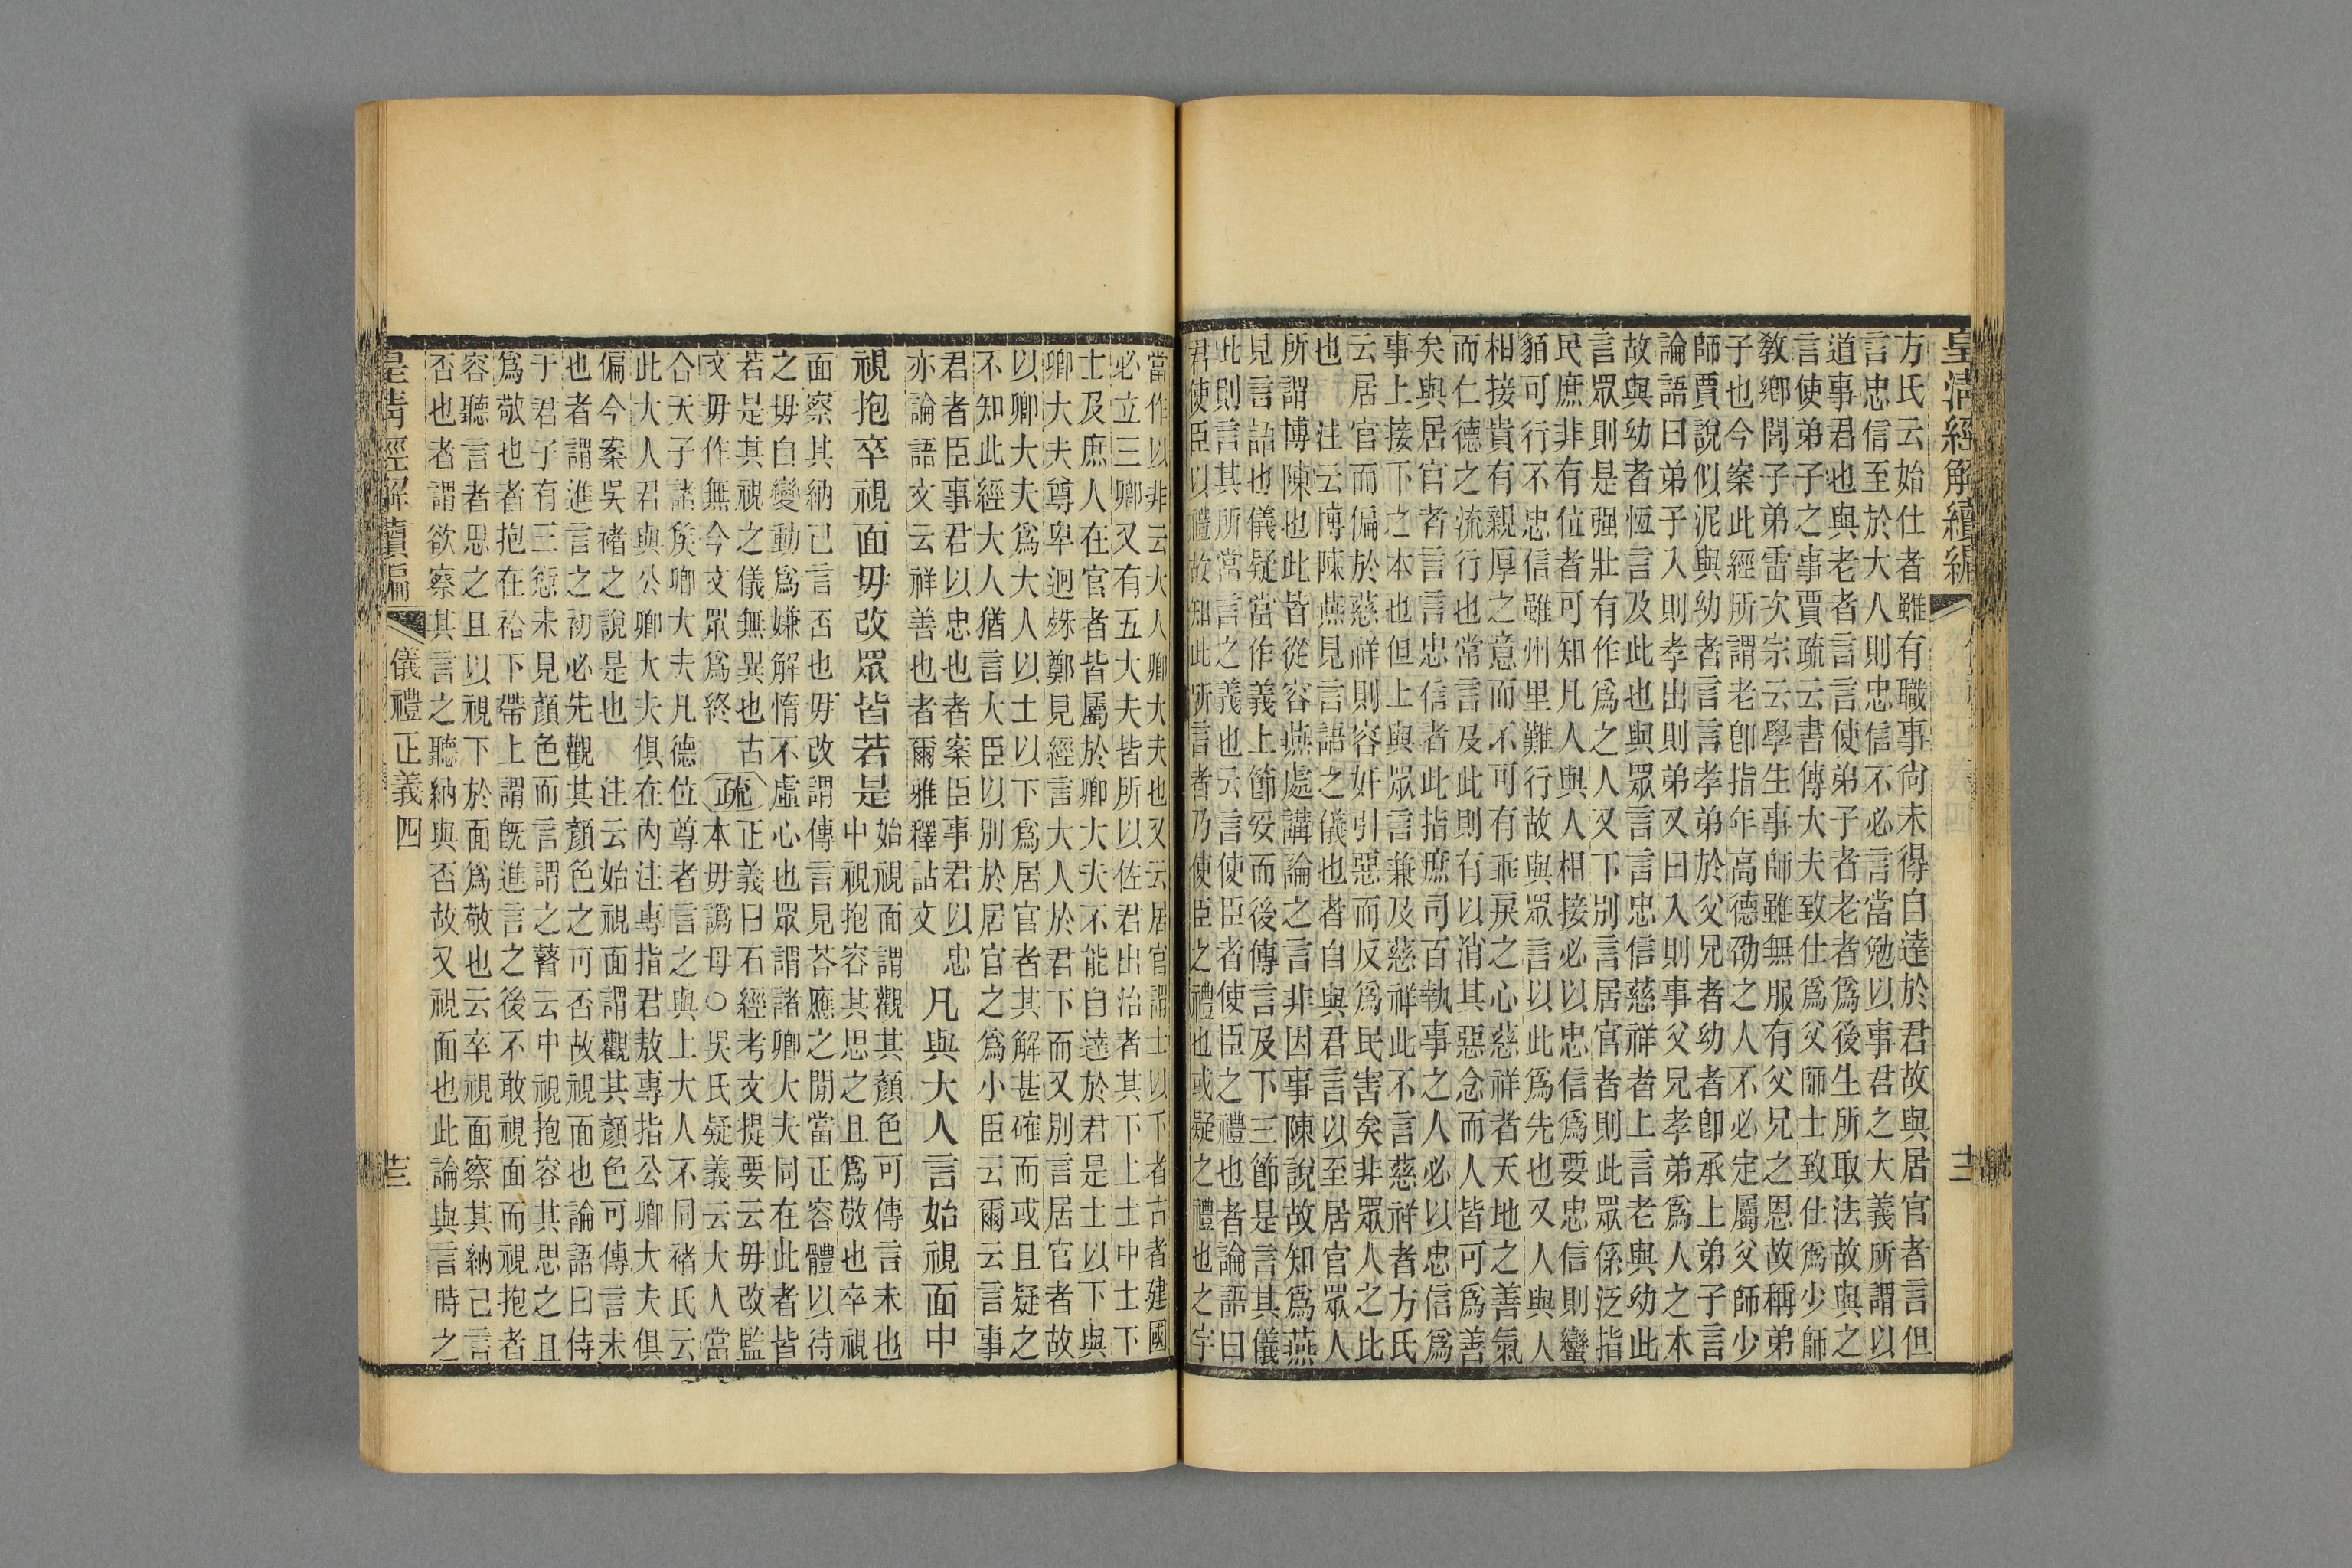 皇清經解續編
方氏云始仕者雖有職事尙未得自達於君故與居官者言但
言忠信至於大人則忠信不必言當勉以事君之大義所謂以
道事君也與老者言言使弟子者老者爲後生所取法故與之
言使弟子之事賈疏云書傳大夫致仕爲父師士致仕爲少師
敎鄉閭子弟雷次宗云學生事師雖無服有父兄之恩故稱弟
子也今案此經所謂老卽指年高德劭之人不必定屬父師少
師賈說似泥與幼者言言孝弟於父兄者幼者卽承上弟子言
論語曰弟子入則孝出則弟又曰入則事父兄孝弟爲人之本
故與幼者恆言及此也與眾言言忠信慈祥者上言老與幼此
言眾則是强壯有作爲之人又下別言居官者則此眾係泛指
民庶非有位者可知凡人與人相接必以忠信爲要忠信則蠻
貊可行不忠信雖州里難行故與眾言以此爲先也又人與人
相接貴有親厚之意而不可有乖戾之心慈祥者天地之善氣
而仁德之流行也常言及此則有以消其惡念而人皆可爲善
矣與居官者言言忠信者此指庶司百執事之人必以忠信爲
事上接下之本也但上與眾言兼及慈祥此不言慈祥者方氏
云居官而偏於慈祥則容奸引惡而反爲民害矣非眾人之比
也 注云博陳燕見言語之儀也者自與君言以至居官眾人
所謂博陳也此皆從容燕處講論之言非因事陳說故知爲燕
見言語也儀疑當作義上節妥而後傳言及下三節是言其儀
此則言其所當言之義也云言使臣者使臣之禮也者論語曰
君使臣以禮故知此所言者乃使臣之禮也或疑之禮也之字
當作以非云大人卿大夫也又云居官謂士以下者古者建國
必立三卿又有五大夫皆所以佐君出治者其下上士中士下
士及庶人在官者皆屬於卿大夫不能自達於君是士以下與
卿大夫尊卑迥殊鄭見經言大人於君下而又別言居官者故
以卿大夫爲大人以士以下爲居官者其解甚確而或且疑之
不知此經大人猶言大臣以別於居官之爲小臣云爾云言事
君者臣事君以忠也者案臣事君以忠
亦論語文云祥善也者爾雅釋詁文
凡與大人言始視面中
視抱卒視面毋改眾皆若是
始視面謂觀其顏色可傳言未也
中視抱容其思之且爲敬也卒視
面察其納己言否也毋改謂傳言見荅應之閒當正容體以待
之毋自變動爲嫌解惰不虛心也眾謂諸卿大夫同在此者皆
若是其視之儀無異也古
文毋作無今文眾爲終
疏
正義曰石經考文提要云毋改監
本毋譌母○吳氏疑義云大人當
合天子諸矦卿大夫凡德位尊者言之與上大人不同褚氏云
此大人君與公卿大夫俱在內注專指君敖專指公卿大夫俱
偏今案吳褚之說是也 注云始視面謂觀其顏色可傳言未
也者謂進言之初必先觀其顏色之可否故視面也論語曰侍
于君子有三愆未見顏色而言謂之瞽云中視抱容其思之且
爲敬也者抱在袷下帶上謂旣進言之後不敢視面而視抱者
容聽言者思之且以視下於面爲敬也云卒視面察其納己言
否也者謂欲察其言之聽納與否故又視面也此論與言時之
皇清經解續編 儀禮正義四